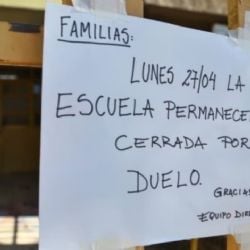 FAMILIAS:
LUNES 27/04 LA
ESCUELA PERMANECE
CERRADA POR
DUELO.
GRACIAS
EQUIPO DIR